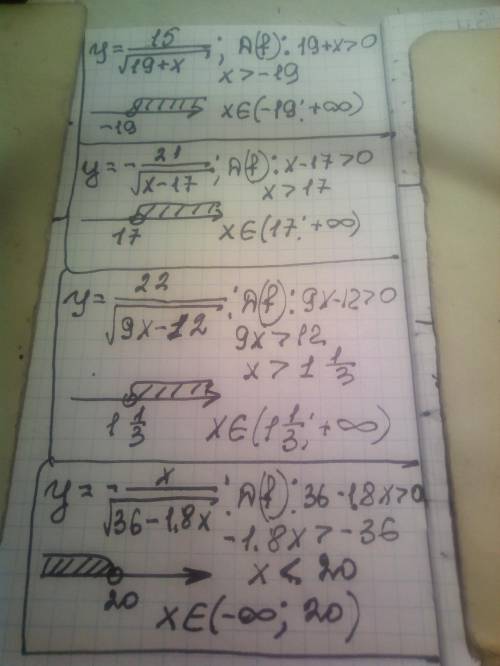 y = 15/√(19+x) ; Д(f): 19+x>0
x>-19
-19 x∈(-19; +∞)
y = -21/√(x-17) ; Д(f): x-17>0
x>17
17 x∈(17; +∞)
y = 22/√(9x-12) ; Д(f): 9x-12>0
9x>12
x > 1 1/3
1 1/3 x∈(1 1/3; +∞)
y = -x/√(36-1,8x) ; Д(f): 36-1,8x>0
-1,8x>-36
x < 20
20
x∈(-∞; 20)